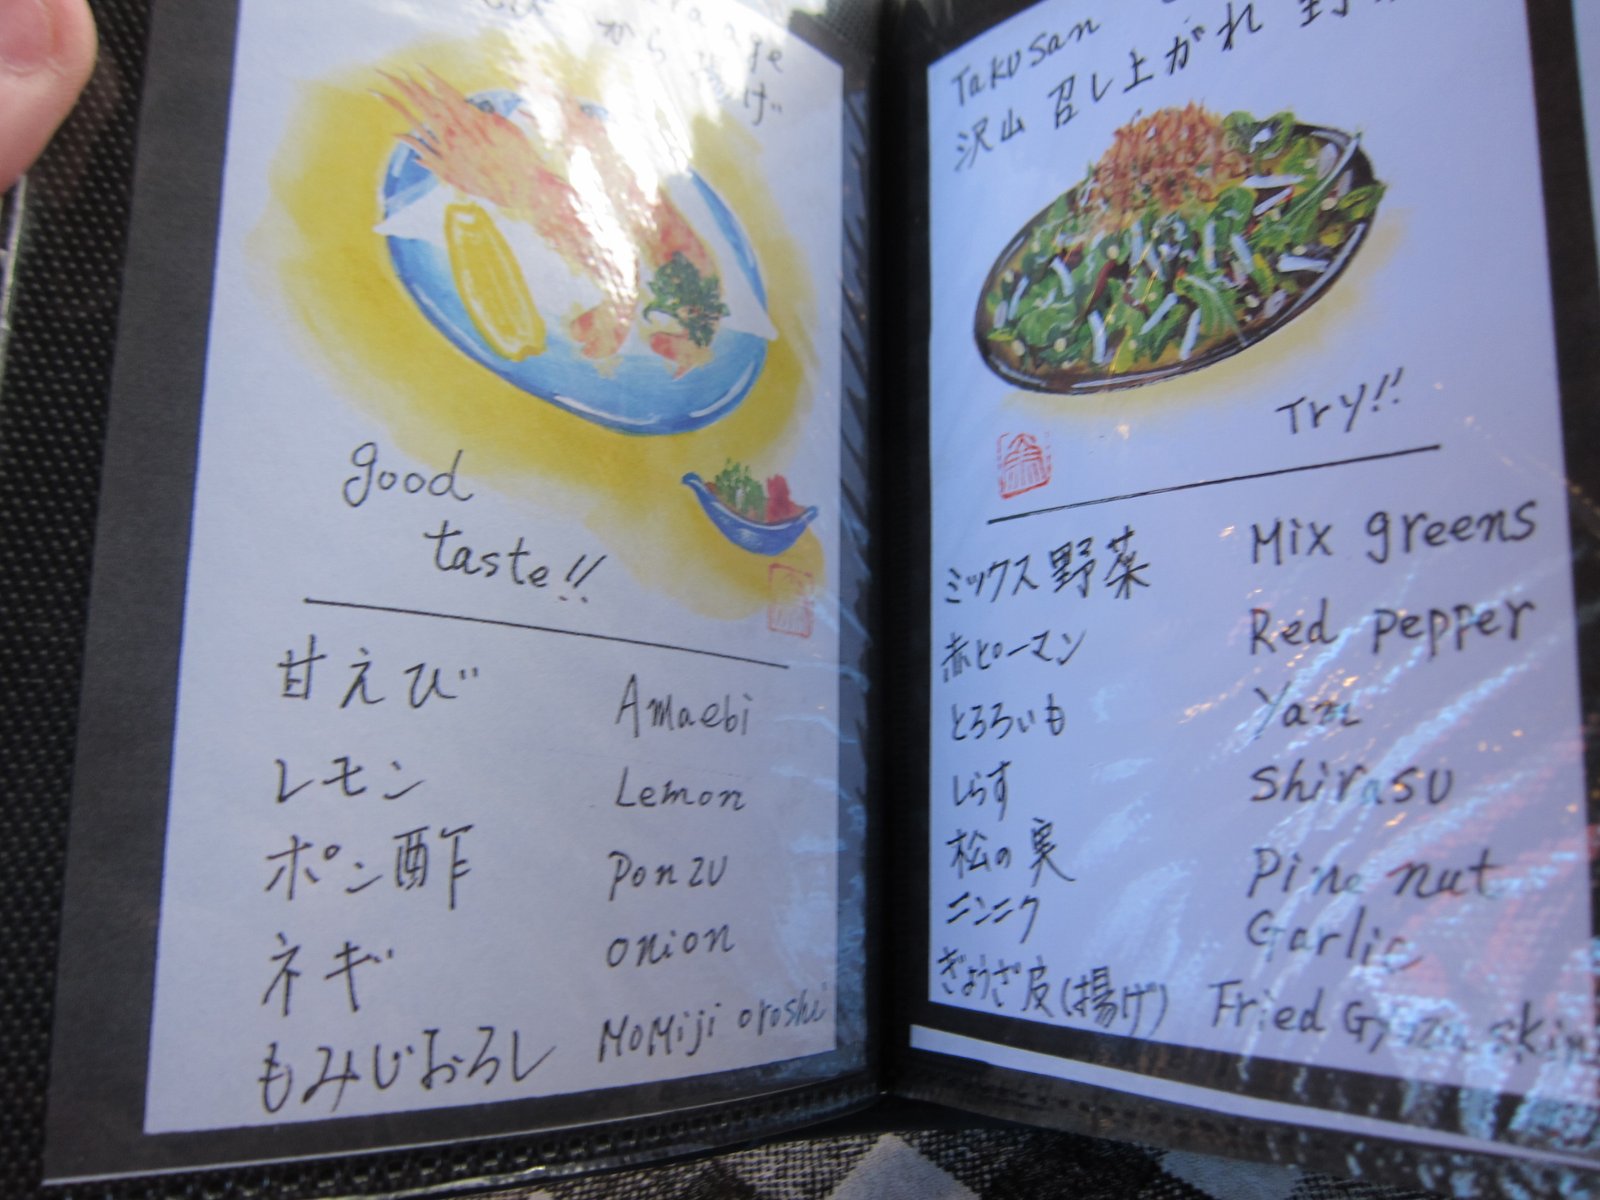 age
から揚げ
good
taste!!
甘えび Amaebi
レモン Lemon
ポン酢 Ponzu
ネギ onion
もみじおろし MoMiji oroshi
Takusan
沢山 召し上がれ 野
Try!!
ミックス野菜 Mix greens
赤ピーマン Red pepper
とろろいも Yam
しらす Shirasu
松の実 Pine nut
ニンニク Garlic
ぎょうざ皮(揚げ) Fried Gyoza skin